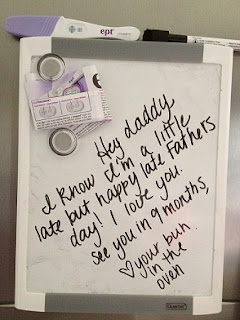 ept
Hey daddy
I know I'm a little
late but happy late Fathers
day! I love you.
See you in 9 months,
♡ your bun
in the
oven
QUARTET